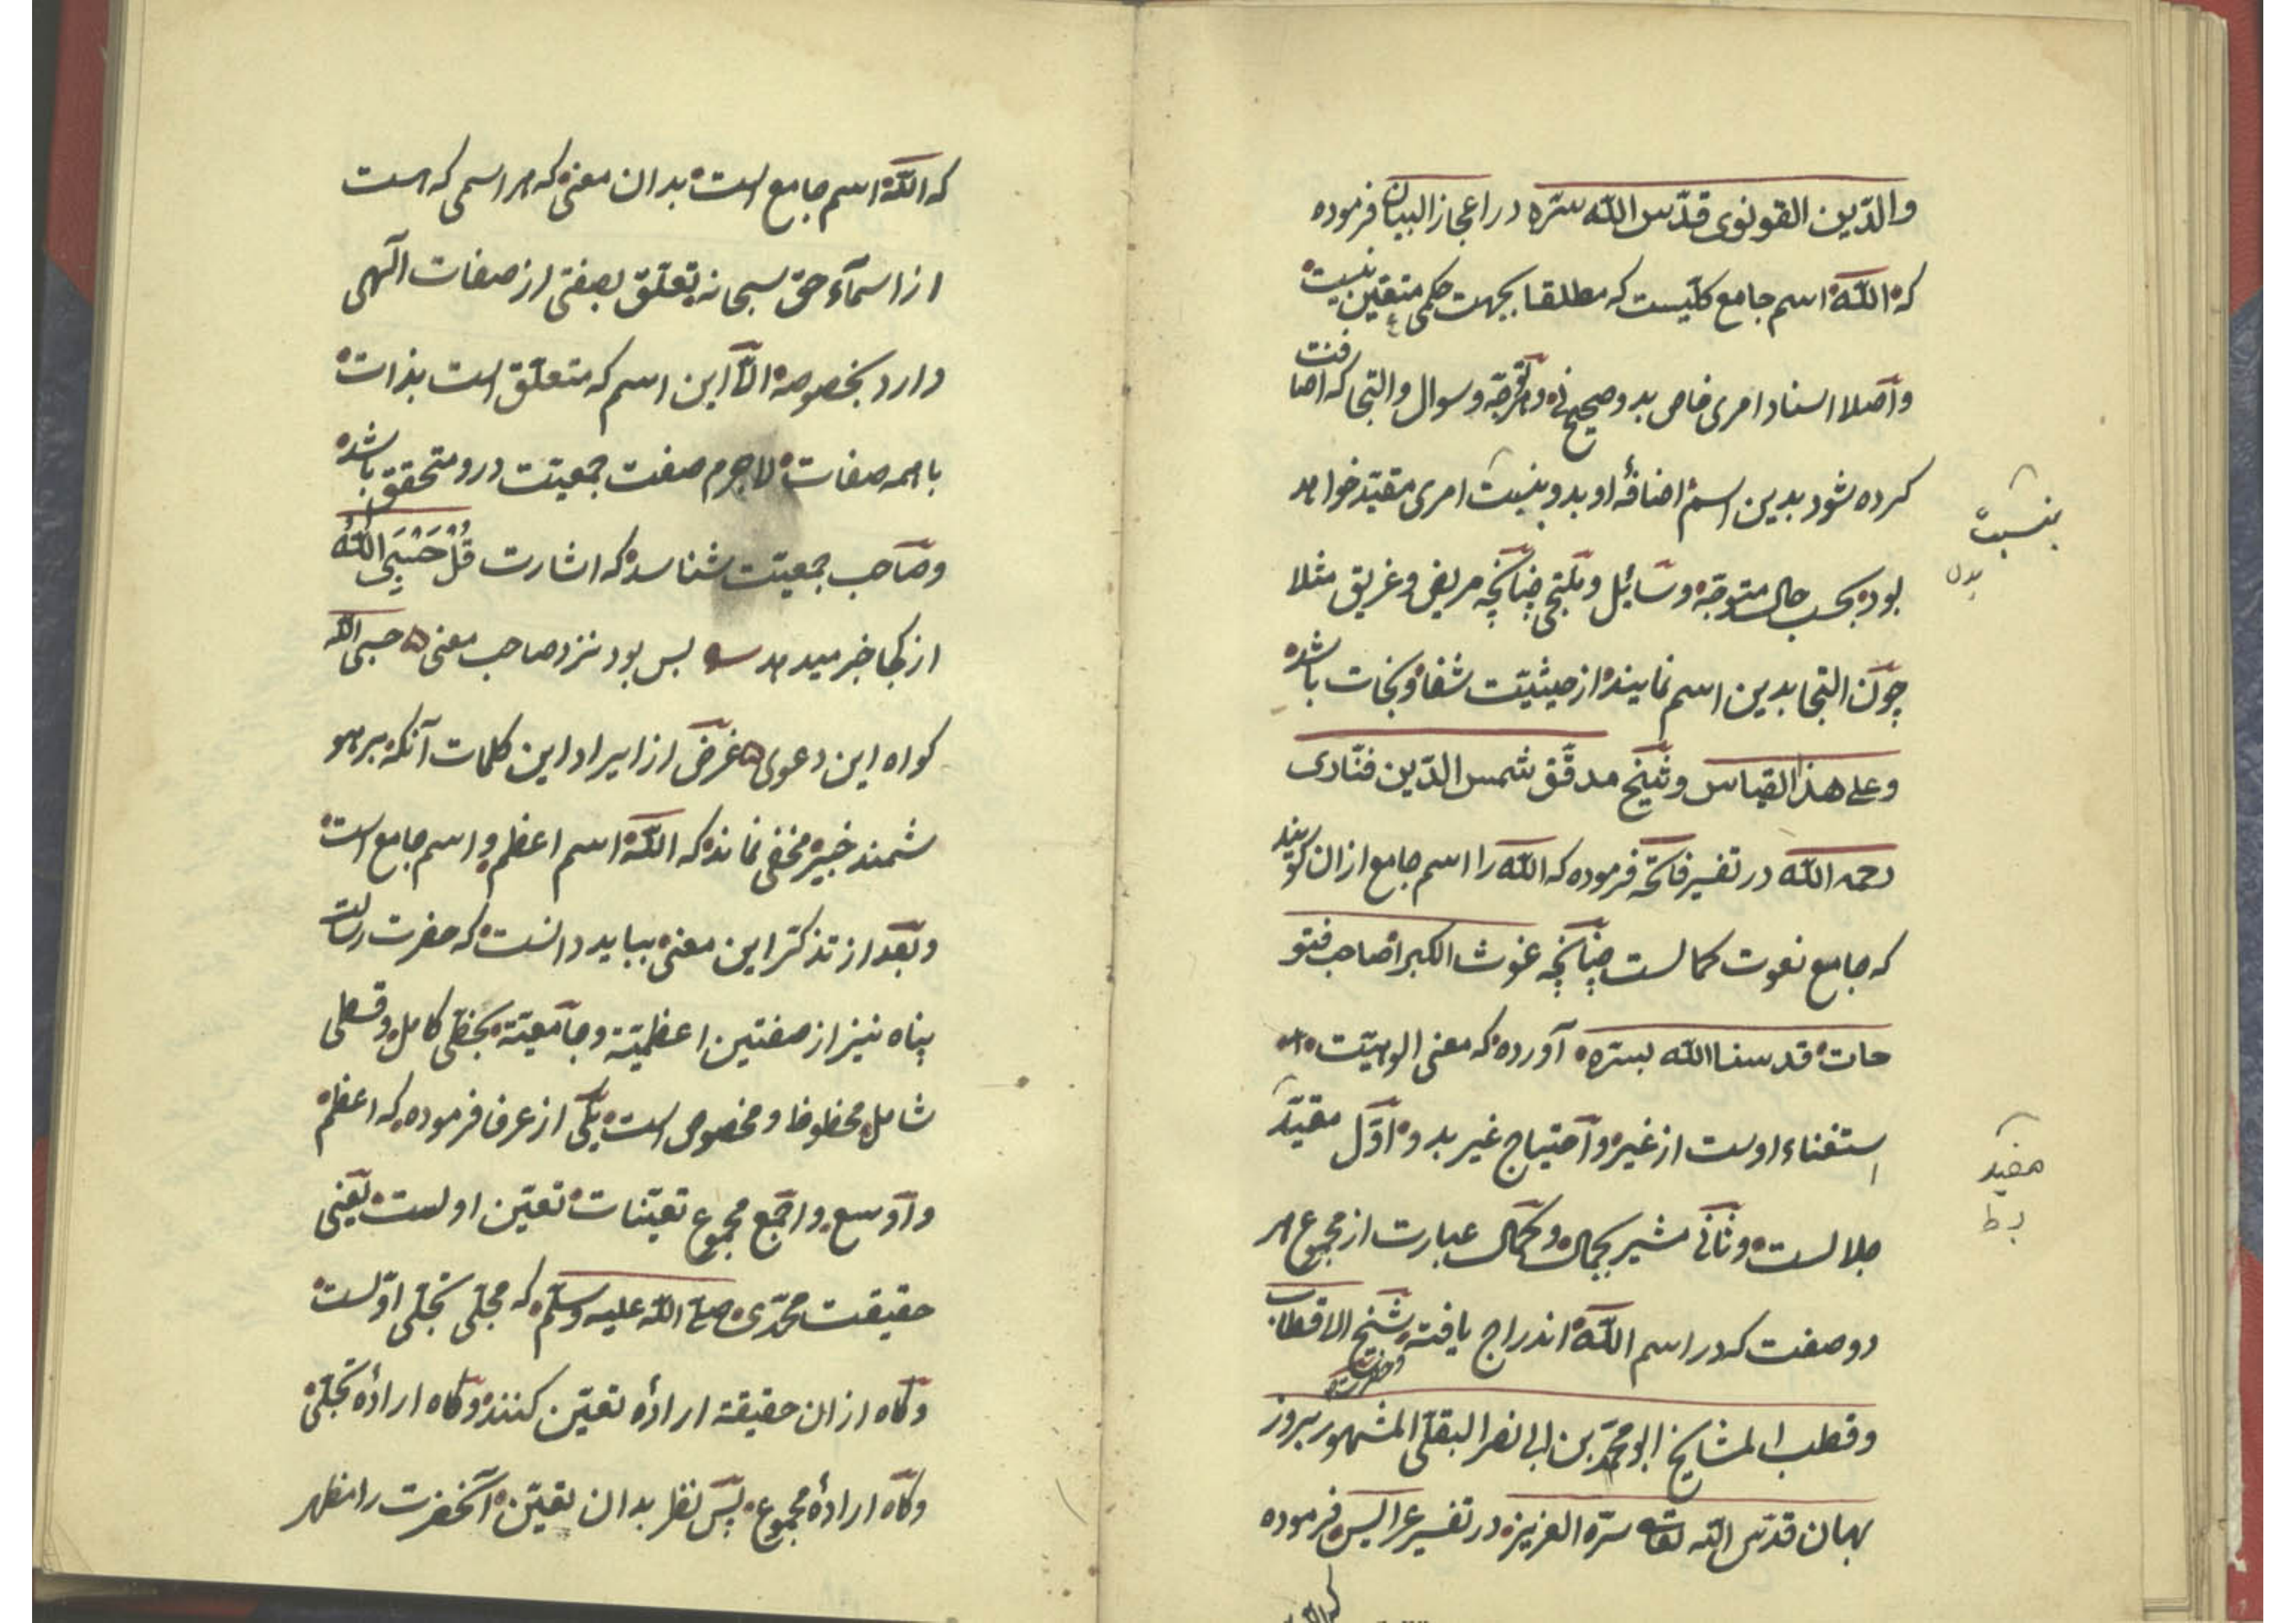 والدّین القونوی قدّس اللّه سرّه در اعجاز البیان فرموده
که اللّه اسم جامع کلّیست که مطلقا بجهت حکمی متعیّن نیست
وأصلا اسناد امری خاص بدو صحیح نی وتوجّه وسوال والتجا که اضافت
کرده شود بدین اسم اضافهٔ او بدو بنسبت امری مقیّد خواهد
بنسبت
بدل
بود بحسب حال متوجّه وسائل وملتجی چنانچه مریض وغریق مثلا
چون التجا بدین اسم نمایند از حیثیّت شفا ونجات باشد
وعلی هذا القیاس وشیخ مدقّق شمس الدّین فنّاری
رحمه اللّه در تفسیر فاتحه فرموده که اللّه را اسم جامع ازان گویند
که جامع نعوت کمالست چنانچه غوث الکبرا صاحب فتو
حات قدسنا اللّه بسرّه آورده که معنی الوهیّت
استغناء اوست از غیر واحتیاج غیر بدو اوّل مقیّد
مفید
ب ط
جلالست وثانی مشیر بجمال وکمال عبارت از مجموع هر
دو صفت که در اسم اللّه اندراج یافته وشیخ الاقطاب
وقطب المشایخ ابو محمّد بن ابی نصر البقلی المشهور بروز
بهان قدّس اللّه تعالی سرّه العزیز در تفسیر عرایس فرموده
که اللّه
که اللّه اسم جامع است بدان معنی که هر اسمی که هست
از اسمآء حق سبحانه تعلّق بصفتی از صفات الهی
دارد بخصوصه الّا این اسم که متعلّق است بذات
با همه صفات لاجرم صفت جمعیّت درو متحقق باشد
وصاحب جمعیّت شناسد که اشارت قُلْ حَسْبِیَ اللّٰهُ
از کجا خبر میدهد بس بود نزد صاحب معنی حسبی اللّه
کواه این دعوی غرض از ایراد این کلمات آنکه بر هو
شمند خبیر مخفی نماند که اللّه اسم اعظم واسم جامع است
وبعد از تذکّر این معنی بباید دانست که حضرت رسالت
پناه نیز از صفتین اعظمیّة وجامعیّة بحظّی کامل وقسطی
شامل محظوظ ومخصوص است یکی از عرفا فرموده که اعظم
واوسع واجمع مجموع تعیّنات تعیّن اولست یعنی
حقیقت محمّدی صلی اللّه علیه وسلّم که مجلی تجلّی اوّلست
وکاه ازان حقیقة ارادهٔ تعیّن کنند وکاه ارادهٔ تجلّی
وکاه ارادهٔ مجموع پس نظر بدان تعیّن آنحضرت را مظهر